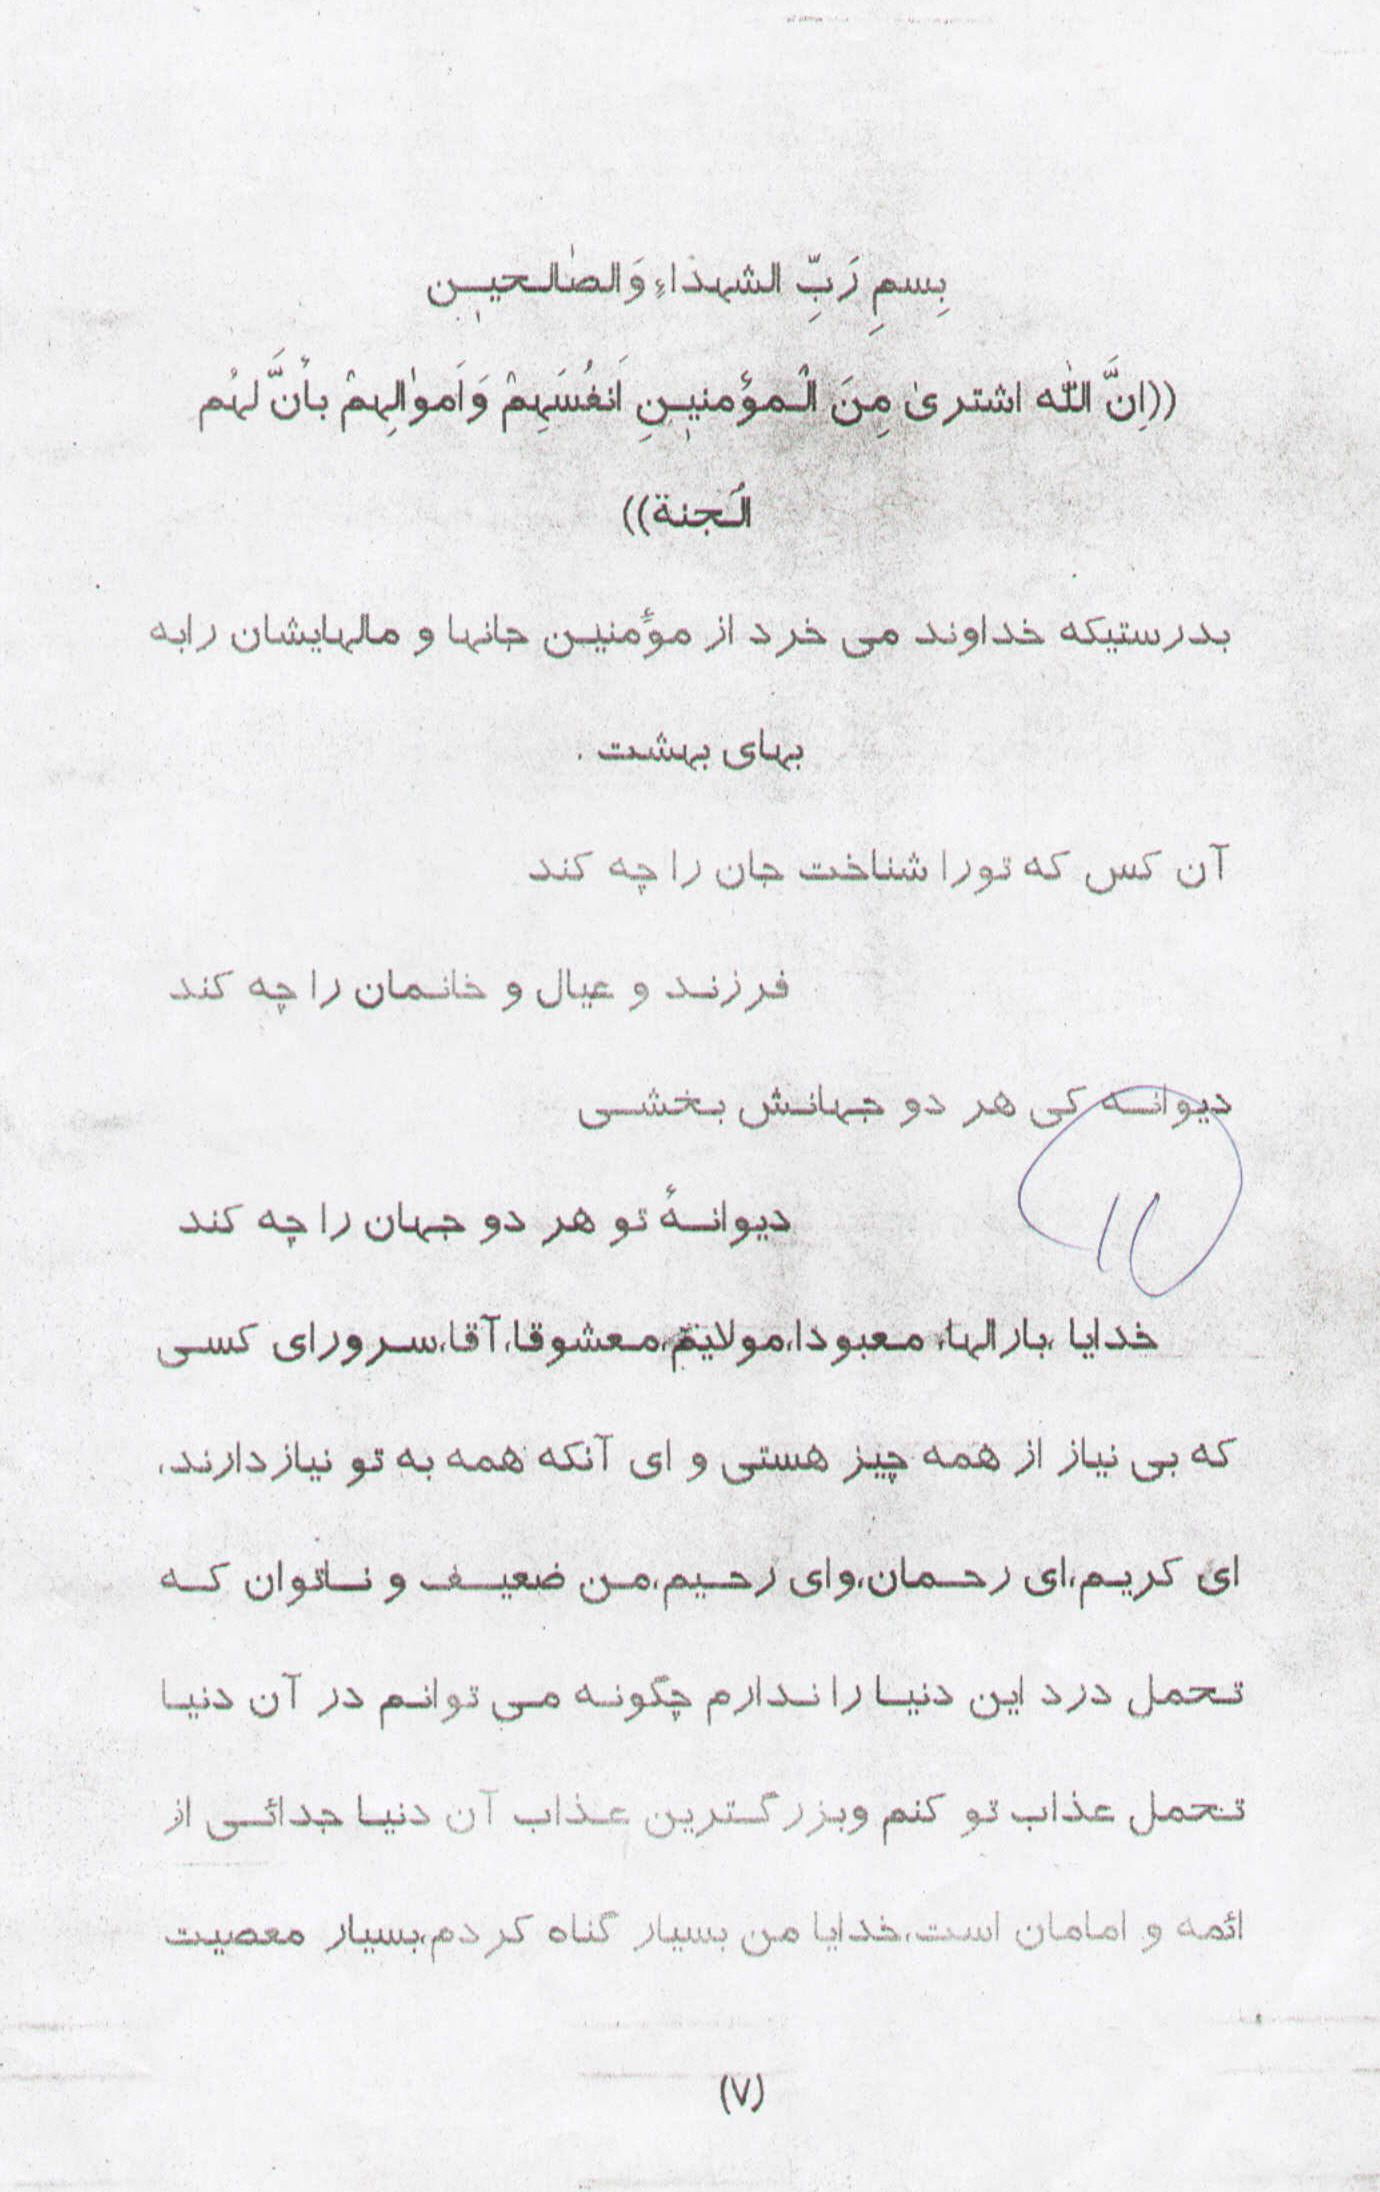 بِسمِ رَبِّ الشهداءِ وَالصٰالحین
((اِنَّ اللّٰه اشتریٰ مِنَ الْمؤمنینِ اَنفُسَهِمْ وَاَموٰالِهِمْ بأنَّ لهُم
الْجنة))
بدرستیکه خداوند می خرد از مؤمنین جانها و مالهایشان رابه
بهای بهشت .
آن کس که تورا شناخت جان را چه کند
فرزند و عیال و خانمان را چه کند
دیوانه کی هر دو جهانش بخشی
دیوانهٔ تو هر دو جهان را چه کند
خدایا ،بارالها، معبودا،مولایم،معشوقا،آقا،سرورای کسی
که بی نیاز از همه چیز هستی و ای آنکه همه به تو نیازدارند،
ای کریم،ای رحمان،وای رحیم،من ضعیف و ناتوان که
تحمل درد این دنیا را ندارم چگونه می توانم در آن دنیا
تحمل عذاب تو کنم وبزرگترین عذاب آن دنیا جدائی از
ائمه و امامان است،خدایا من بسیار گناه کردم،بسیار معصیت
(۷)